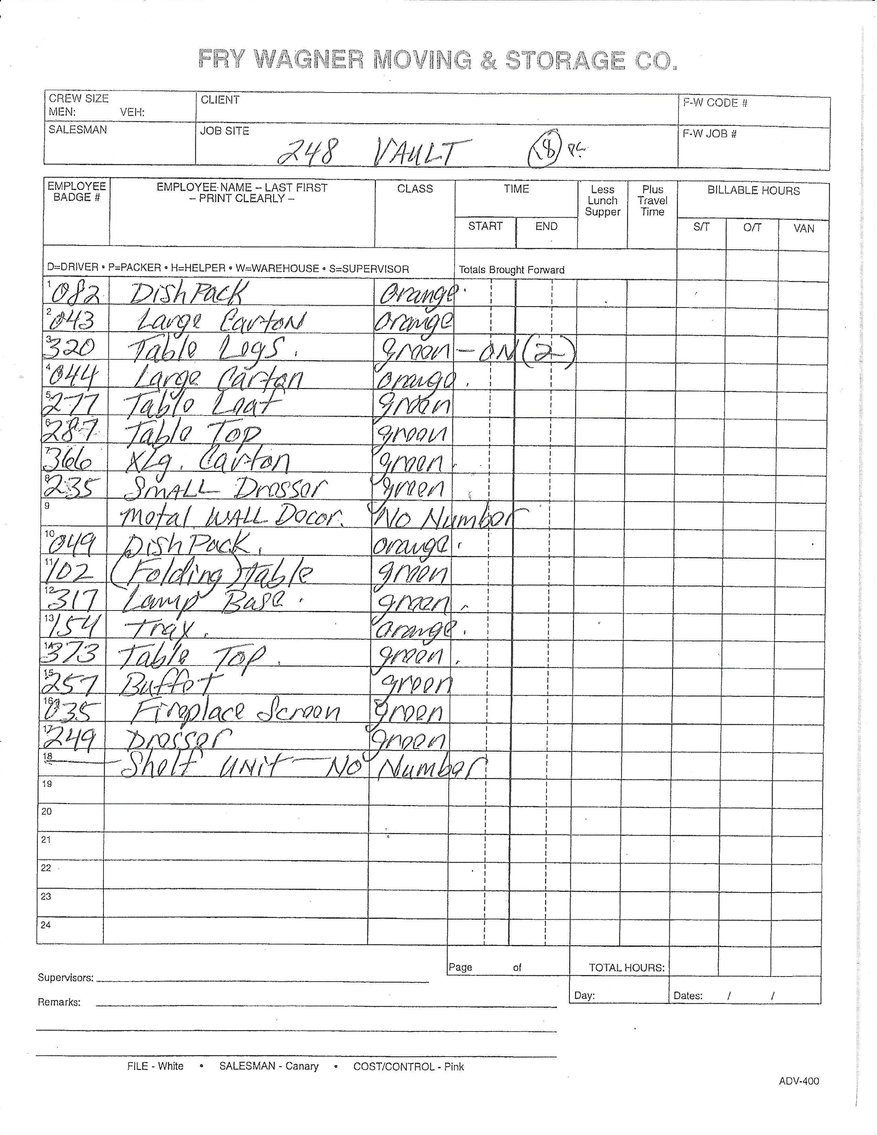 FRY WAGNER MOVING & STORAGE CO.
CREW SIZE
MEN: VEH:
CLIENT
F-W CODE #
SALESMAN
JOB SITE
F-W JOB #
248 VAULT 18 pc.
EMPLOYEE BADGE # EMPLOYEE NAME – LAST FIRST – PRINT CLEARLY – CLASS TIME Less Lunch Supper Plus Travel Time BILLABLE HOURS
START END S/T O/T VAN
D=DRIVER • P=PACKER • H=HELPER • W=WAREHOUSE • S=SUPERVISOR Totals Brought Forward
1 082 DishPack Orange
2 043 Large Carton Orange
3 320 Table Legs. green – ON (2)
4 044 Large Carton Orange.
5 277 Table Leaf green
6 287 Table Top green
7 366 XLg. Carton green.
8 235 SMALL Dresser green
9 Metal WALL Decor. No Number
10 049 DishPack. orange.
11 102 (Folding) Table green
12 317 Lamp Base. green.
13 154 Tray. Orange.
14 373 Table Top. green.
15 257 Buffet green
16 035 Fireplace Screen green
17 249 Dresser green
18 — Shelf UNIT — NO Number
19
20
21
22
23
24
Page of TOTAL HOURS:
Supervisors:
Day: Dates: / /
Remarks:
FILE - White • SALESMAN - Canary • COST/CONTROL - Pink
ADV-400